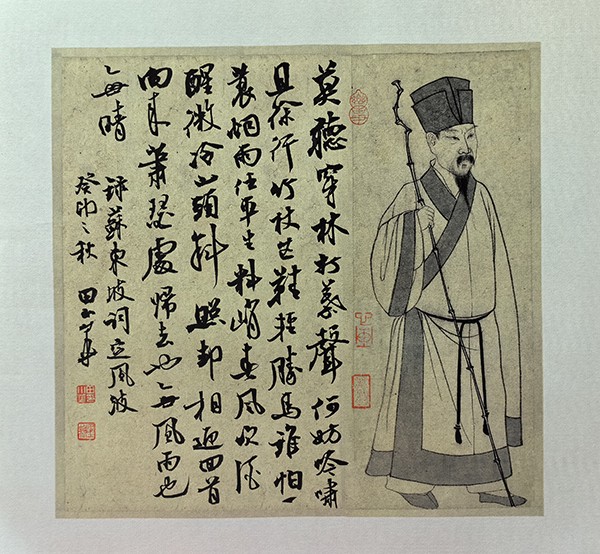 莫聽穿林打葉聲何妨吟嘯
且徐行竹杖芒鞋輕勝馬誰怕一
蓑烟雨任平生料峭春風吹酒
醒微冷山頭斜照却相迎回首
向來蕭瑟處歸去也無風雨也
無晴
錄蘇東坡詞定風波
癸卯之秋 田